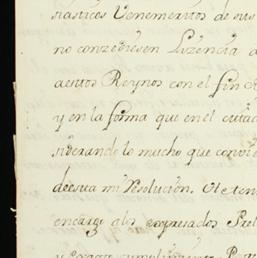 siasticos Venemeritos de sus
no conzediesen Lizencia a
aestos Reynos con el fin
y en la forma que en el citad
siderando lo mucho que convie
desea mi resolucion. Ele ten
encargo alos expresados Prel
y exacto cumplimiento